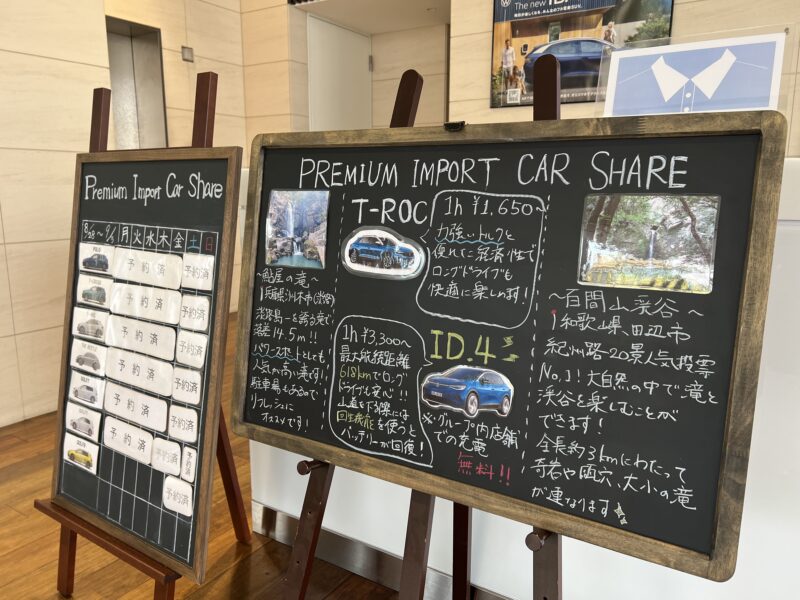 The new ID.
Premium Import Car Share
8/28〜9/3 月 火 水 木 金 土 日
予約済 予約済
予約済 予約済
予約済 予約済
予約済 予約済
予約済 予約済
予約済 予約済 予約済
予約済
PREMIUM IMPORT CAR SHARE
〜鮎屋の滝〜
兵庫県洲本市(淡路)
淡路島一を誇る滝で
落差14.5m!!
パワースポットとしても
人気が高い滝です!
駐車場もあるので
リフレッシュに
オススメです!
T-ROC
1h ¥1,650〜
力強いトルクと
優れた経済性で
ロングドライブも
快適に楽しめます!
1h ¥3,300〜
最大航続距離
618kmでロング
ドライブも安心!!
山道を下る際には
回生機能を使うと
バッテリーが回復!
ID.4
※グループ内店舗
での充電
無料!!
〜百間山渓谷〜
和歌山県田辺市
紀州路-20景人気投票
No.1!大自然の中で滝と
渓谷を楽しむことが
できます!
全長約3kmにわたって
奇岩や甌穴、大小の滝
が連なります